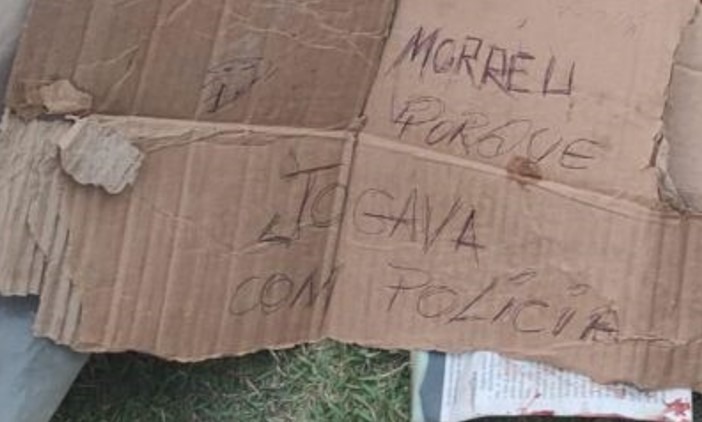 MORREU
PORQUE
JOGAVA
COM POLICIA